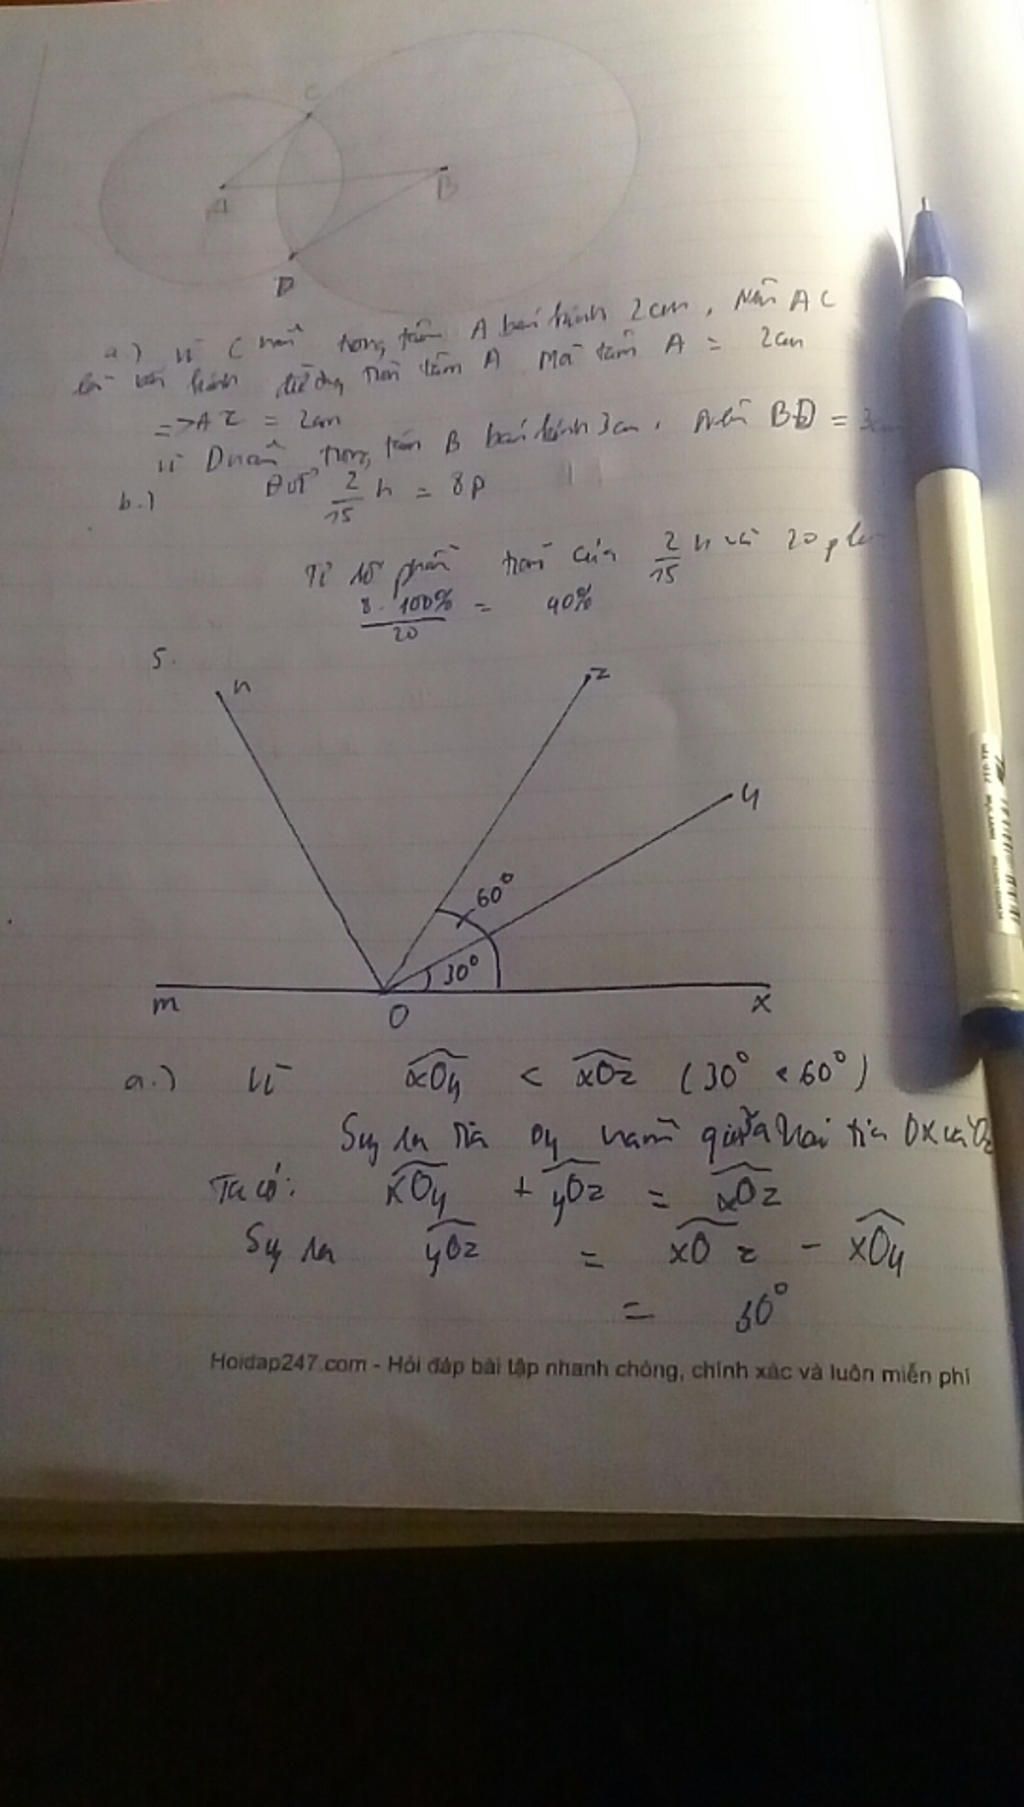 C
A
B
D
a.) Vì C nằm trong tâm A bán kính 2cm, Nên AC
là bán kính đường tròn tâm A Mà tâm A = 2cm
=> AC = 2cm
Vì D nằm trong tâm B bán kính 3cm, Nên BD = 3cm
b.) Đổi 2/15 h = 8p
Tỉ số phần trăm của 2/15 h và 20
8. 100% / 20 = 40%
5.
n
z
y
60°
30°
m
O
x
a.) Vì xOy < xOz (30° < 60°)
Suy ra tia Oy nằm giữa hai tia Ox và Oz
Ta có: xOy + yOz = xOz
Suy ra yOz = xOz - xOy
= 30°
Hoidap247.com - Hỏi đáp bài tập nhanh chóng, chính xác và luôn miễn phí